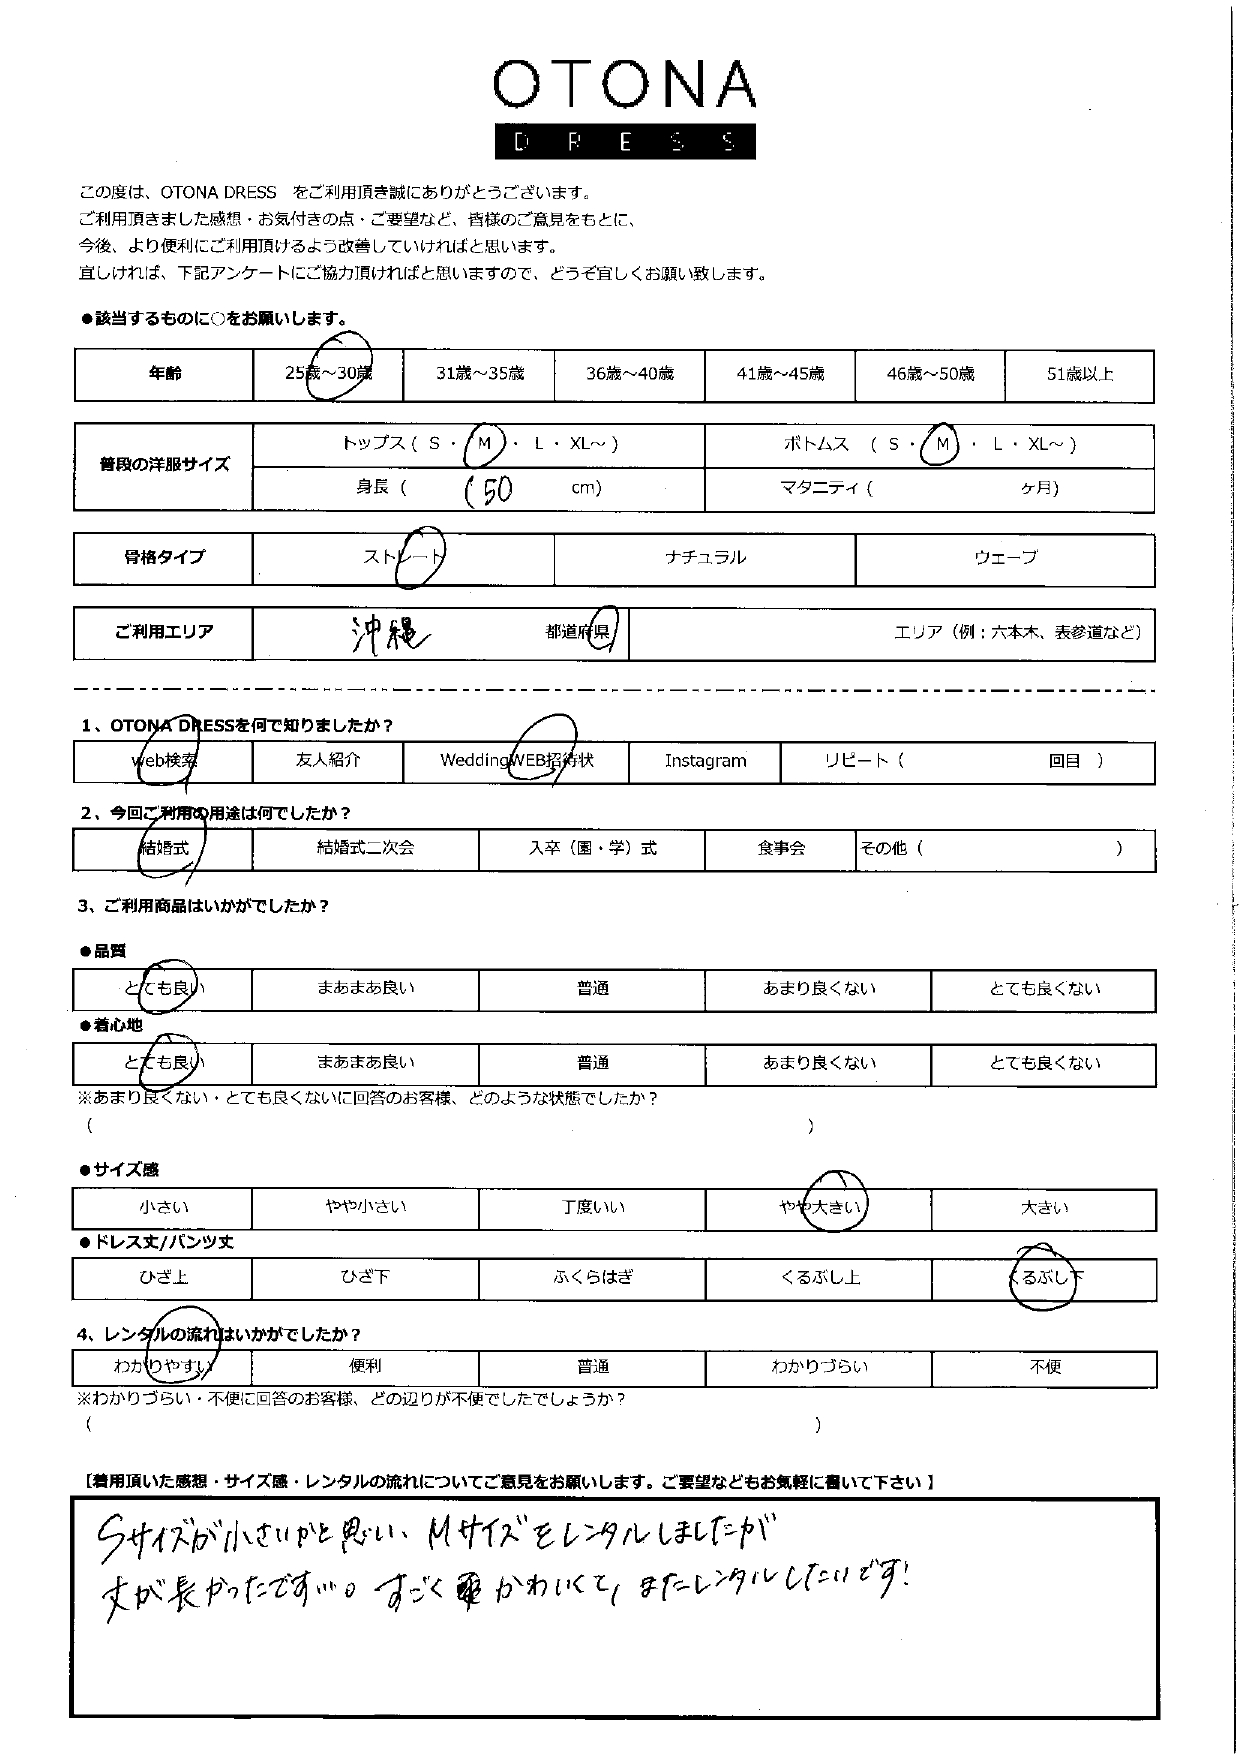 OTONA
DRESS
この度は、OTONA DRESS をご利用頂き誠にありがとうございます。
ご利用頂きました感想・お気付きの点・ご要望など、皆様のご意見をもとに、
今後、より便利にご利用頂けるよう改善していければと思います。
宜しければ、下記アンケートにご協力頂ければと思いますので、どうぞ宜しくお願い致します。
●該当するものに○をお願いします。
年齢 25歳～30歳 31歳～35歳 36歳～40歳 41歳～45歳 46歳～50歳 51歳以上
普段の洋服サイズ トップス ( S ・ M ・ L ・ XL～ ) ボトムス ( S ・ M ・ L ・ XL～ )
身長 ( 150 cm) マタニティ ( ケ月)
骨格タイプ ストレート ナチュラル ウェーブ
ご利用エリア 沖縄 都道府県 エリア（例：六本木、表参道など）
1、OTONA DRESSを何で知りましたか？
web検索 友人紹介 WeddingWEB招待状 Instagram リピート（ 回目 ）
2、今回ご利用の用途は何でしたか？
結婚式 結婚式二次会 入卒（園・学）式 食事会 その他（ ）
3、ご利用商品はいかがでしたか？
●品質
とても良い まあまあ良い 普通 あまり良くない とても良くない
●着心地
とても良い まあまあ良い 普通 あまり良くない とても良くない
※あまり良くない・とても良くないに回答のお客様、どのような状態でしたか？
（ ）
●サイズ感
小さい やや小さい 丁度いい やや大きい 大きい
●ドレス丈/パンツ丈
ひざ上 ひざ下 ふくらはぎ くるぶし上 くるぶし下
4、レンタルの流れはいかがでしたか？
わかりやすい 便利 普通 わかりづらい 不便
※わかりづらい・不便に回答のお客様、どの辺りが不便でしたでしょうか？
（ ）
【着用頂いた感想・サイズ感・レンタルの流れについてご意見をお願いします。ご要望などもお気軽に書いて下さい 】
Sサイズが小さいかと思い、Mサイズをレンタルしましたが
丈が長かったです…。すごくかわいくて、またレンタルしたいです!